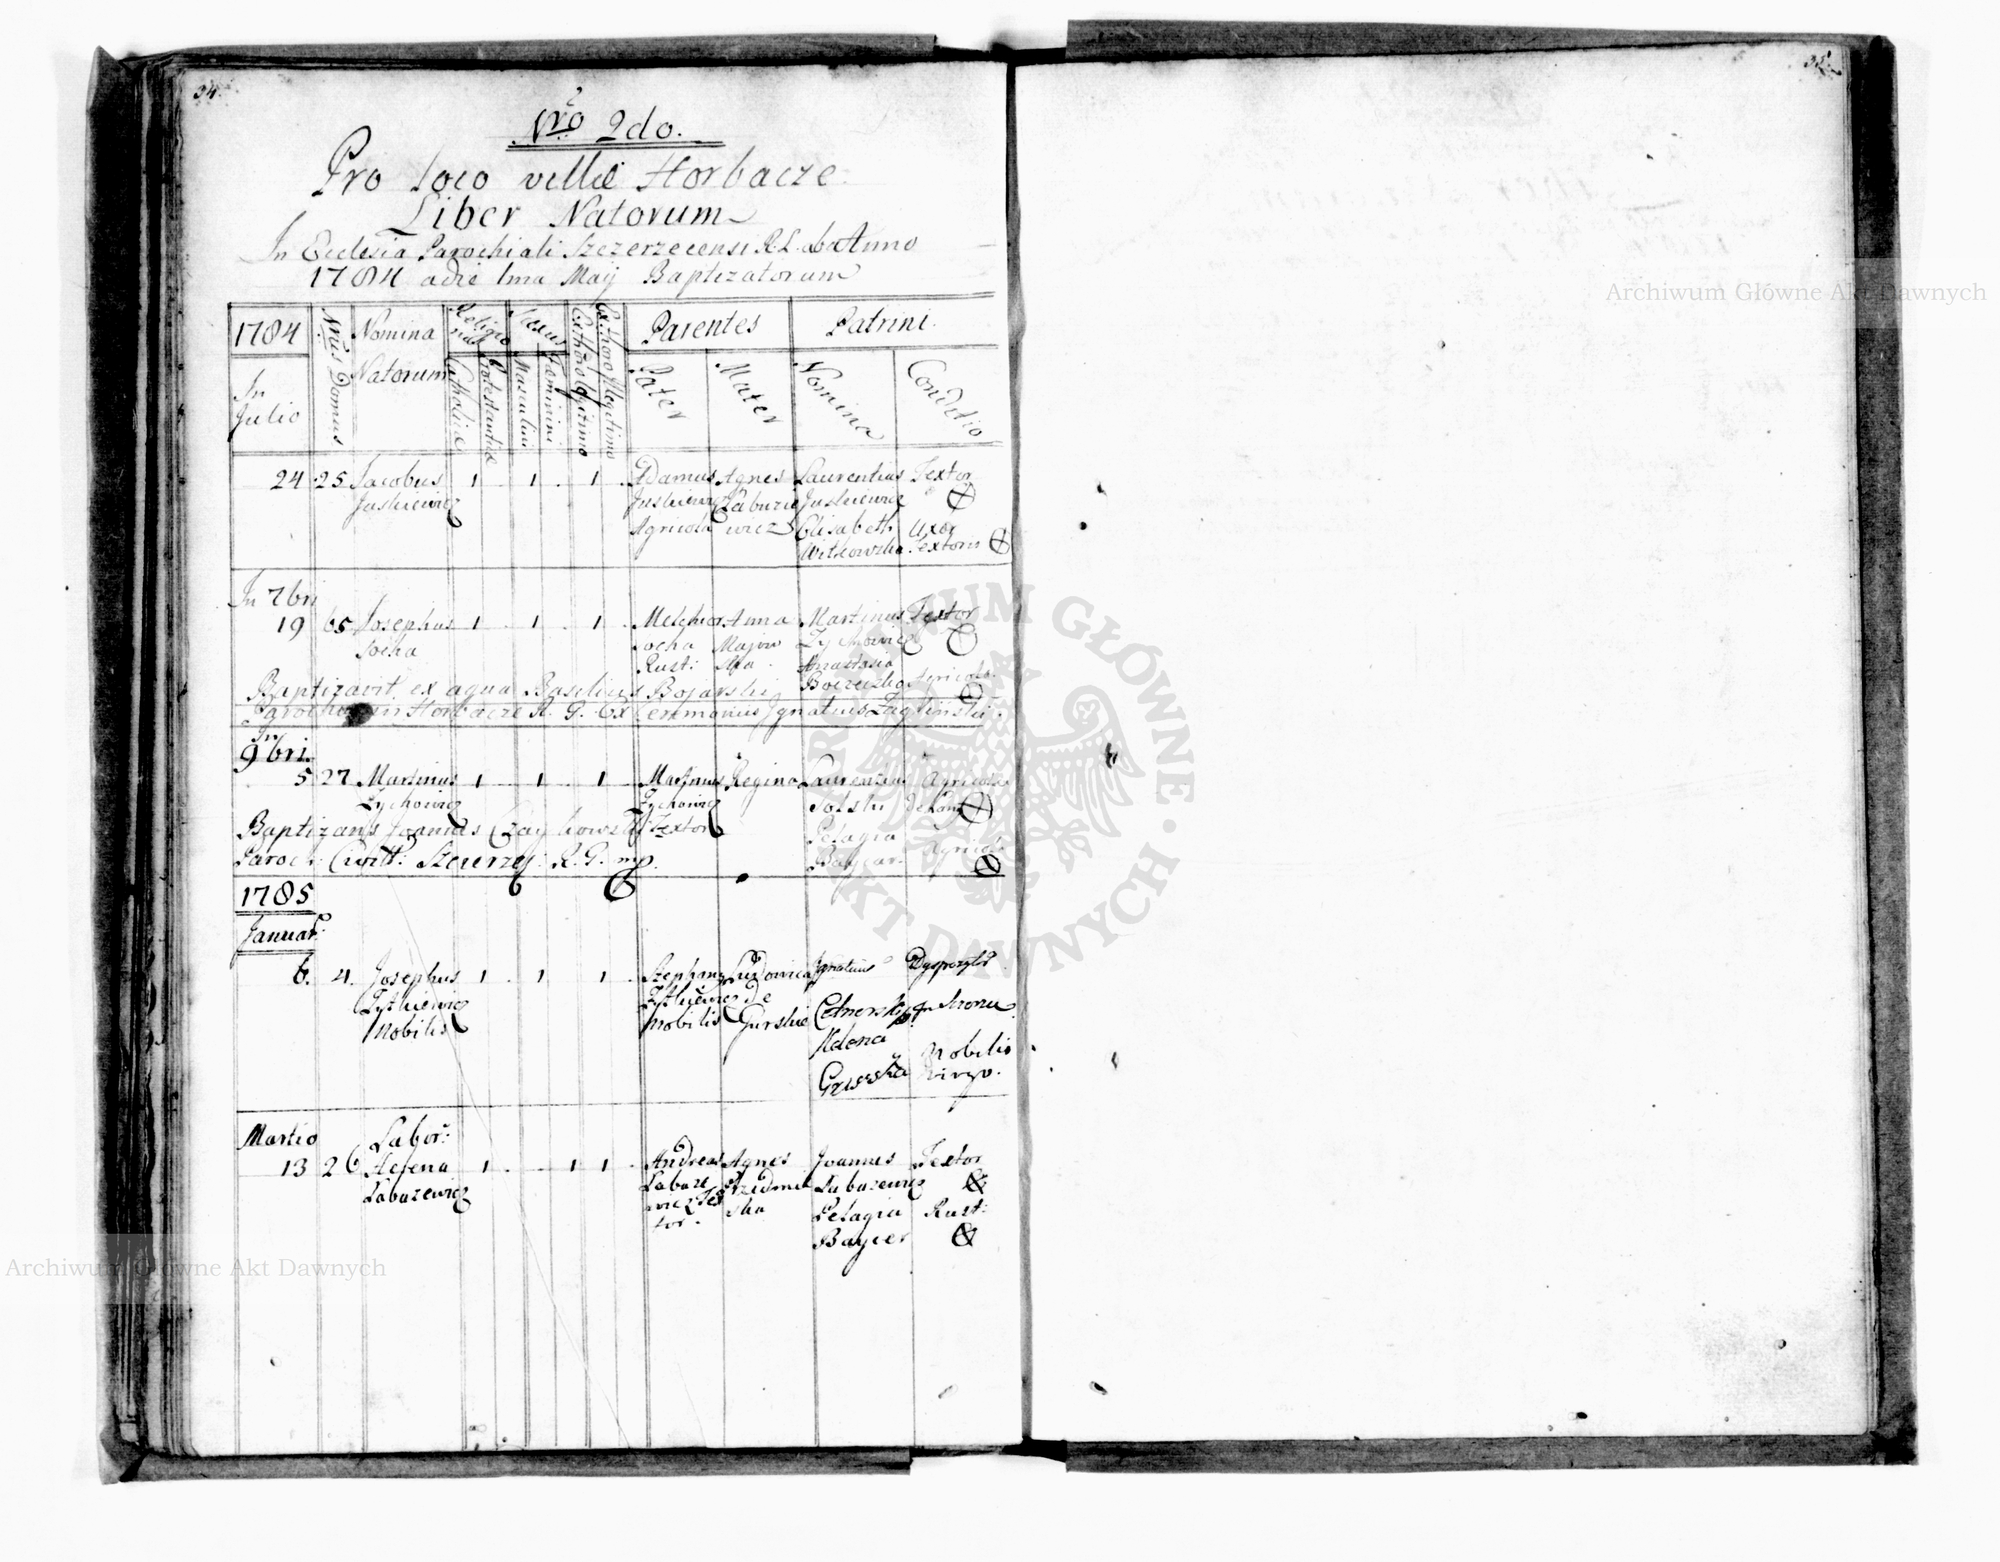 34.
35.
Nro 2do.
Pro loco villæ Horbacze
Liber Natorum
In Ecclesia Parochiali Szczerzecensi R. L. ab Anno
1784 a die 1ma Maij Baptizatorum
1784 Nrus Domus Nomina Religio Sexus Parentes Patrini
In Julio Natorum Catholica Protestantica Masculini Feminini Ex thoro legitimo Ex thoro illegitimo Pater Mater Nomina Conditio
24 25 Jacobus 1 1 1 Adamus Agnes Laurentius Textor
Juskiewicz Juskiewicz Łaburze Juskiewicz
Agricola wicz Elisabeth Uxor
Witkowska Textoris
In 7bri
19 65 Josephus 1 1 1 Melchior Anna Martinus Textor
Socha Socha Majow Zychowicz
Rust: ska Anastasia
Boreczka Agricola
Baptizavit ex aqua Basilius Bojarski
Parochus in Horbacze R. G. Ex Ceremoniis Ignatius Zagliński
In
9bri.
5 27 Martinus 1 1 1 Martinus Regina Laurentius Agricola
Zychowicz Zychowicz Solski
Baptizans Joannes Czaykowski Textor Pelagia
Paroch: Civitt: Szczerzec: R. G. mp. Baycar Agricol:
1785
Januar:
6. 4. Josephus 1 1 1 Stephanus Ludovica Ignatius
Zytkiewicz Zytkiewicz De
Nobilis Nobilis Gurskie Cetnerski
Helena Nobilis
virgo.
Martio Labor:
13 26 Helena 1 1 1 Andreas Agnes Joannes Textor
Labazewicz Labaze Labazewicz
wicz Tex ska Pelagia Rust:
tor. Baycer
Archiwum Główne Akt Dawnych
Archiwum Główne Akt Dawnych
ARCHIWUM GŁÓWNE AKT DAWNYCH